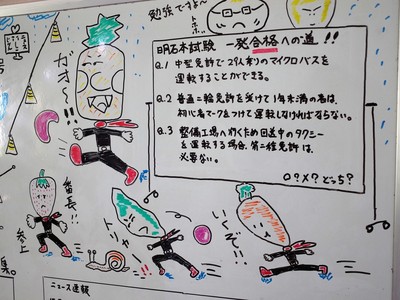 勉強ですよ〜
明石本試験 一発合格への道!!
Q.1 中型免許で29人乗りのマイクロバスを
運転することができる。
Q.2 普通二輪免許を受けて1年未満の者は、
初心者マークをつけて運転しなければならない。
Q.3 整備工場へ行くため回送中のタクシー
を運転する場合、第二種免許は、
必要ない。
○?×? どっち?
ガオ〜!!
番長!!
参上
トリャー!!
いくぞ!!
集。
ニュース速報